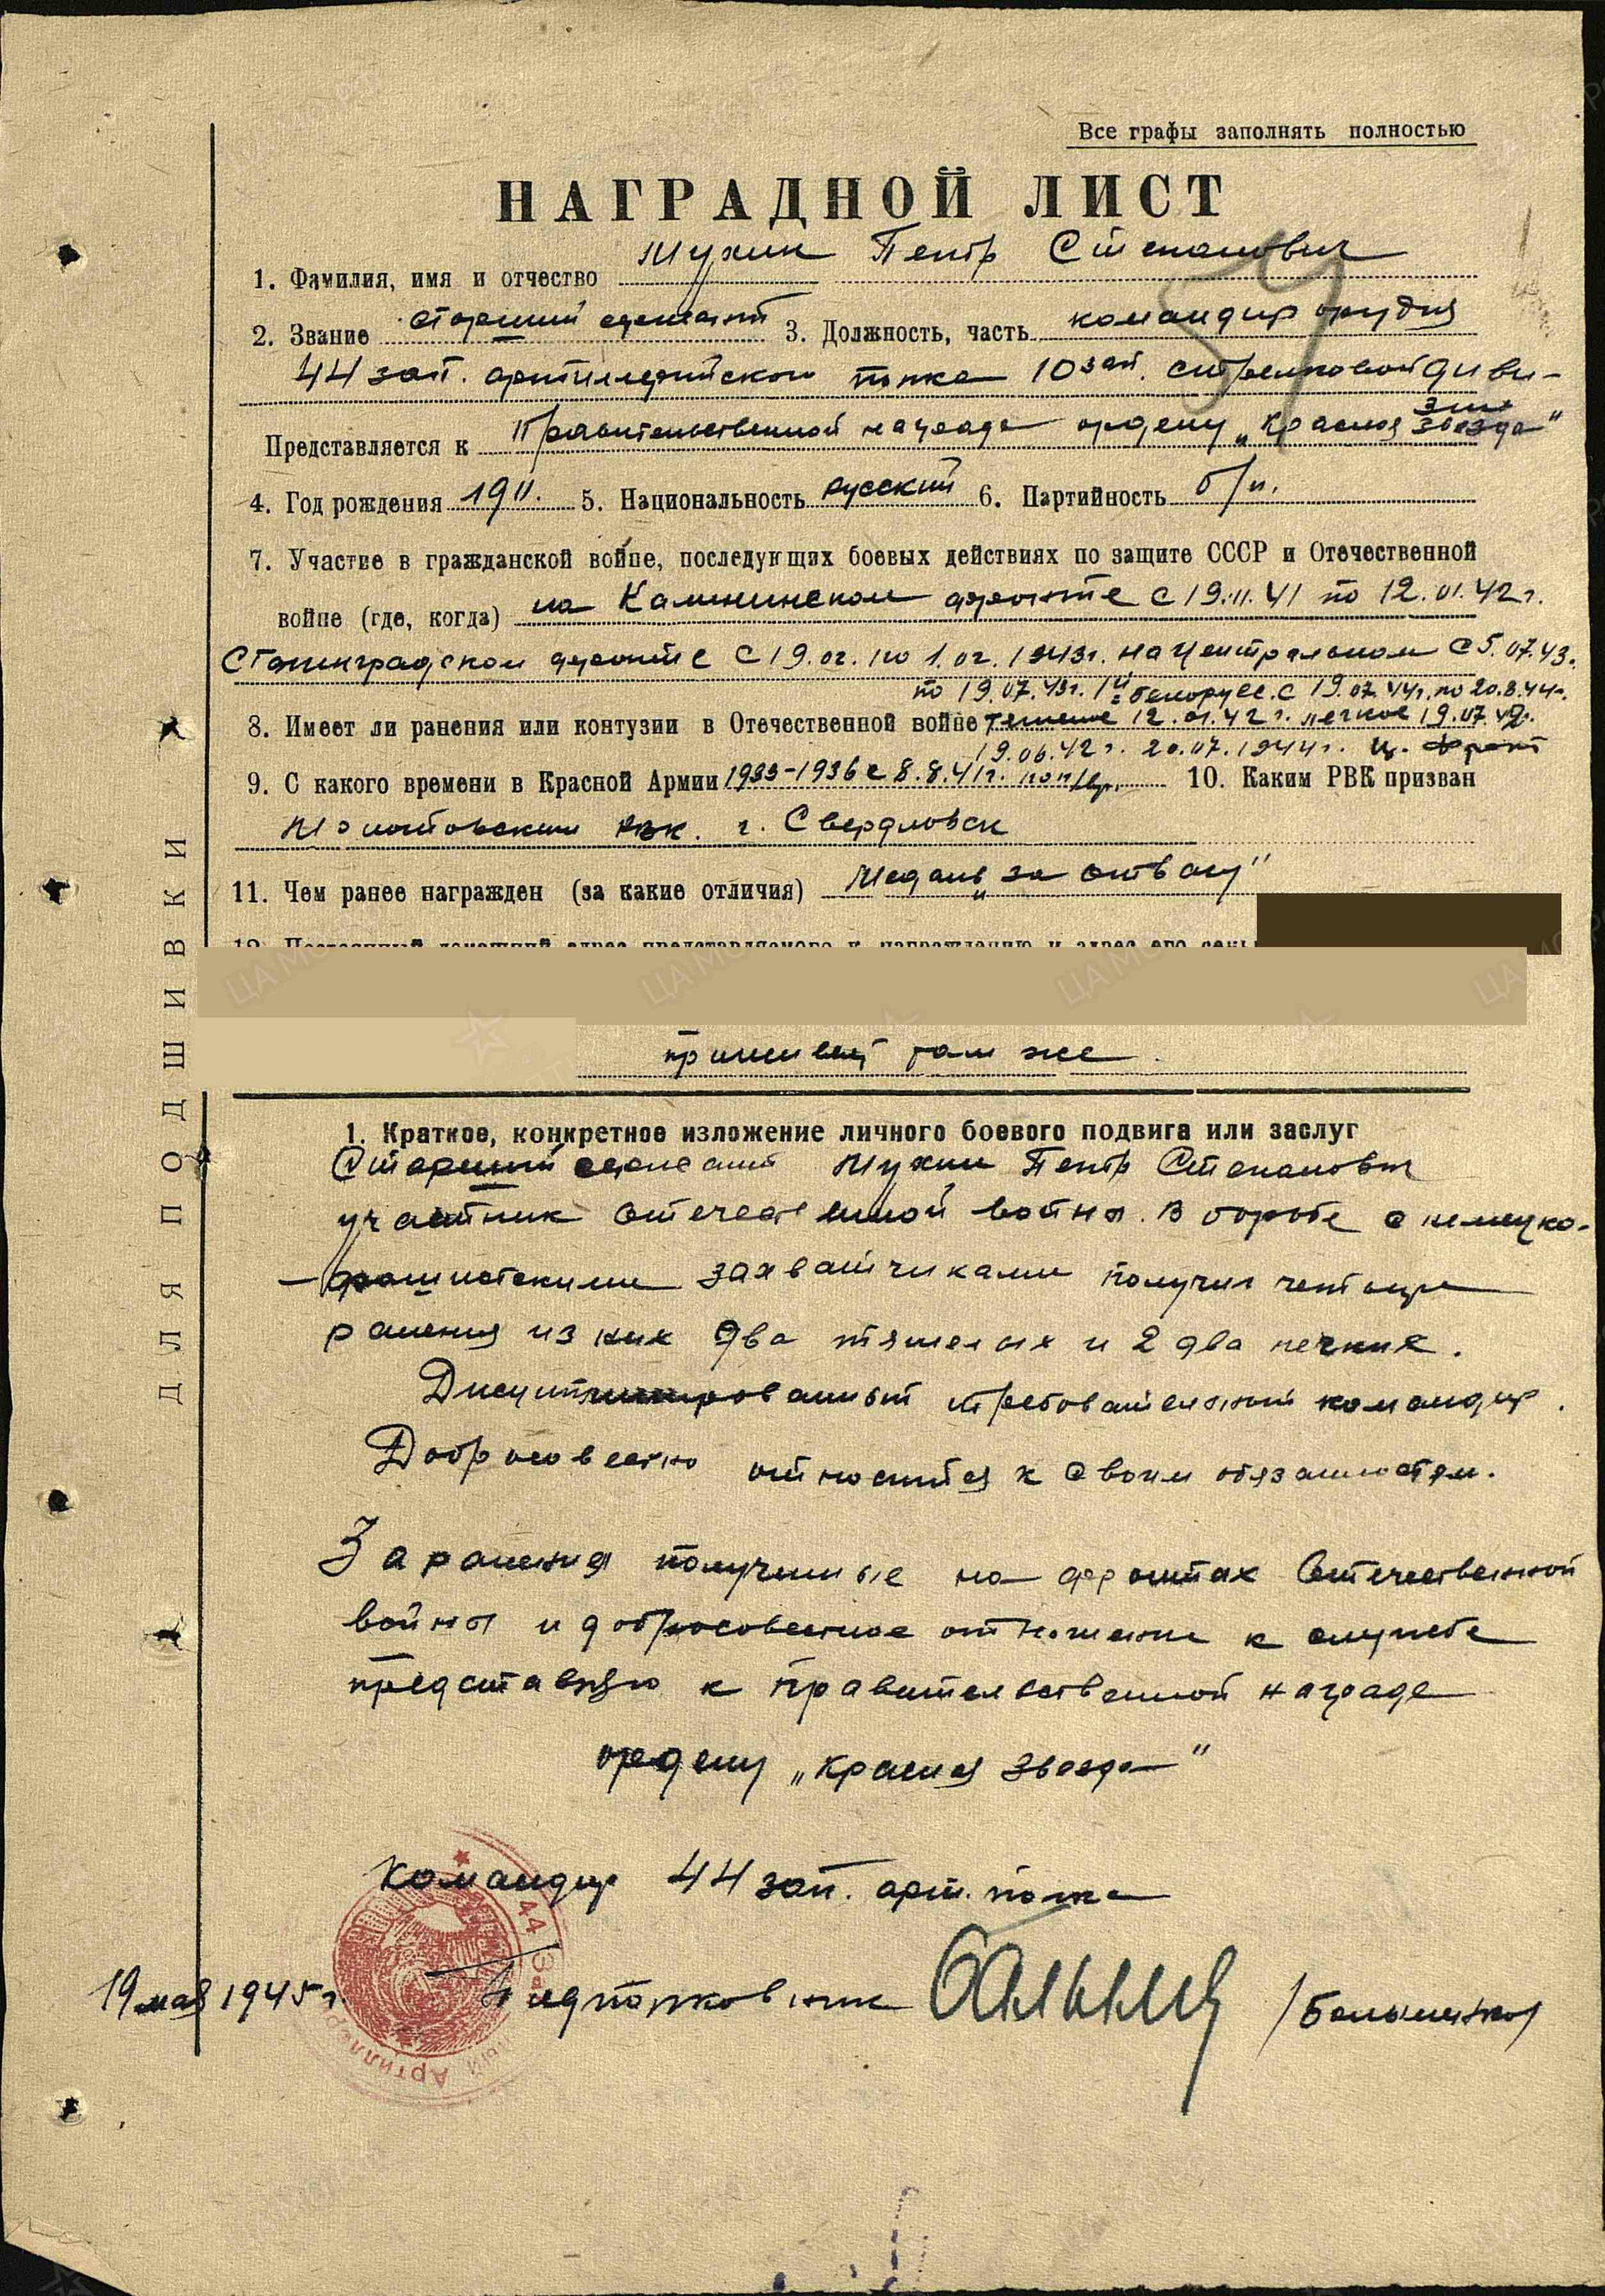 Все графы заполнять полностью
НАГРАДНОЙ ЛИСТ
1. Фамилия, имя и отчество Мухин Петр Степанович
2. Звание старший сержант 3. Должность, часть командир орудия
44 зап. артиллерийского полка 10 зап. стрелковой диви-
Представляется к Правительственной награде ордену „Красная звезда"
4. Год рождения 1911. 5. Национальность русский 6. Партийность б/п.
7. Участие в гражданской войне, последующих боевых действиях по защите СССР и Отечественной
войне (где, когда) на Калининском фронте с 19.11.41 по 12.01.42 г.
Сталинградском фронте с 19.02. по 1.02.1943г. на Центральном с 5.07.43.
по 19.07.43г. 1й Белорусс. с 19.07.44г. по 20.8.44г.
8. Имеет ли ранения или контузии в Отечественной войне тяжелое 12.01.42 г. легкое 19.07.
19.06.42 г. 20.07.1944г. Ц. Фронт
9. С какого времени в Красной Армии 1933-1936 с 8.8.41г. 10. Каким РВК призван
Молотовским рвк. г. Свердловск
11. Чем ранее награжден (за какие отличия) Медаль „за отвагу"
12. Постоянный домашний адрес представляемого к награждению и адрес его семьи
там же
ДЛЯ ПОДШИВКИ
1. Краткое, конкретное изложение личного боевого подвига или заслуг
Старший сержант Мухин Петр Степанович
участник отечественной войны. В борьбе с немецко-
-фашистскими захватчиками получил четыре
ранения из них два тяжелых и 2 два легких.
Дисциплинированный требовательный командир.
Добросовестно относится к своим обязанностям.
За ранения полученные на фронтах Отечественной
войны и добросовестное отношение к службе
представляю к правительственной награде
ордену „Красная звезда"
Командир 44 зап. арт. полка
19 мая 1945 г. Подполковник
44 Артиллер